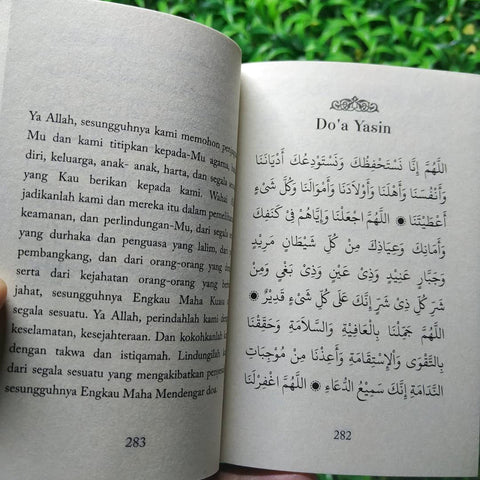 Do'a Yasin
اَللّٰهُمَّ اِنَّا نَسْتَحْفِظُكَ وَنَسْتَوْدِعُكَ اَدْيَانَنَا
وَاَنْفُسَنَا وَاَهْلَنَا وَاَوْلَادَنَا وَاَمْوَالَنَا وَكُلَّ شَىْءٍ
اَعْطَيْتَنَا ۞ اَللّٰهُمَّ اجْعَلْنَا وَاِيَّاهُمْ فِىْ كَنَفِكَ
وَاَمَانِكَ وَعِيَاذِكَ مِنْ كُلِّ شَيْطَانٍ مَرِيْدٍ
وَجَبَّارٍ عَنِيْدٍ وَذِىْ عَيْنٍ وَذِىْ بَغْيٍ وَمِنْ
شَرِّ كُلِّ ذِىْ شَرٍّ اِنَّكَ عَلَى كُلِّ شَىْءٍ قَدِيْرٌ ۞
اَللّٰهُمَّ جَمِّلْنَا بِالْعَافِيَةِ وَالسَّلَامَةِ وَحَقِّقْنَا
بِالتَّقْوَى وَاْلاِسْتِقَامَةِ وَاَعِذْنَا مِنْ مُوْجِبَاتِ
النَّدَامَةِ اِنَّكَ سَمِيْعُ الدُّعَاءِ ۞ اَللّٰهُمَّ اغْفِرْلَنَا
282
Ya Allah, sesungguhnya kami memohon
Mu dan kami titipkan kepada-Mu agama,
diri, keluarga, anak- anak, harta, dan segala
yang Kau berikan kepada kami. Wahai
jadikanlah kami dan mereka itu dalam
keamanan, dan perlindungan-Mu, dari segala
yang durhaka dan penguasa yang lalim, dan
pembangkang, dan dari orang-orang yang
serta dari kejahatan orang-orang yang
jahat, sesungguhnya Engkau Maha Kuasa
segala sesuatu. Ya Allah, perindahlah kami
keselamatan, kesejahteraan. Dan kokohkanlah
dengan takwa dan istiqamah. Lindungilah
dari segala sesuatu yang mengakibatkan
sesungguhnya Engkau Maha Mendengar doa.
283